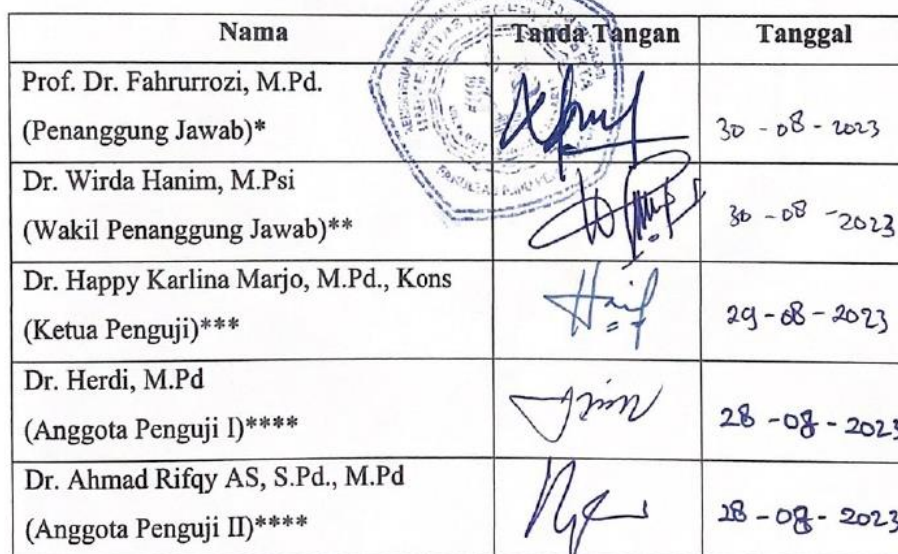 Nama Tanda Tangan Tanggal
Prof. Dr. Fahrurrozi, M.Pd.
(Penanggung Jawab)* 30 - 08 - 2023
Dr. Wirda Hanim, M.Psi
(Wakil Penanggung Jawab)** 30 - 08 - 2023
Dr. Happy Karlina Marjo, M.Pd., Kons
(Ketua Penguji)*** 29 - 08 - 2023
Dr. Herdi, M.Pd
(Anggota Penguji I)**** 28 - 08 - 2023
Dr. Ahmad Rifqy AS, S.Pd., M.Pd
(Anggota Penguji II)**** 28 - 08 - 2023